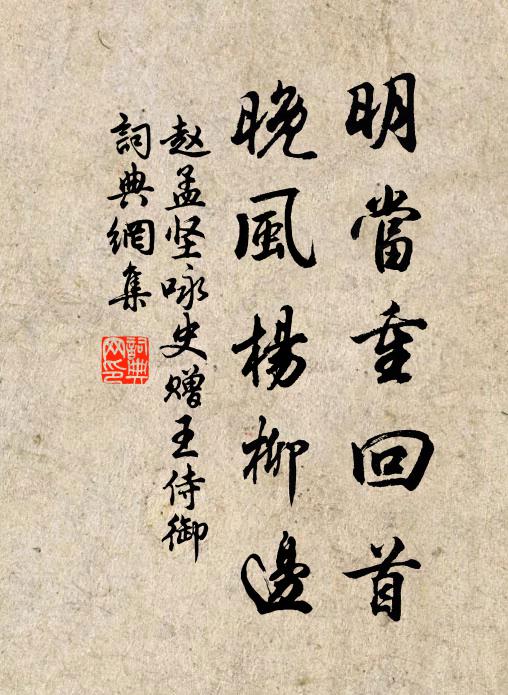 明當重回首
晚風楊柳邊
赵孟坚咏史赠王侍御
詞典網集
詞典网印